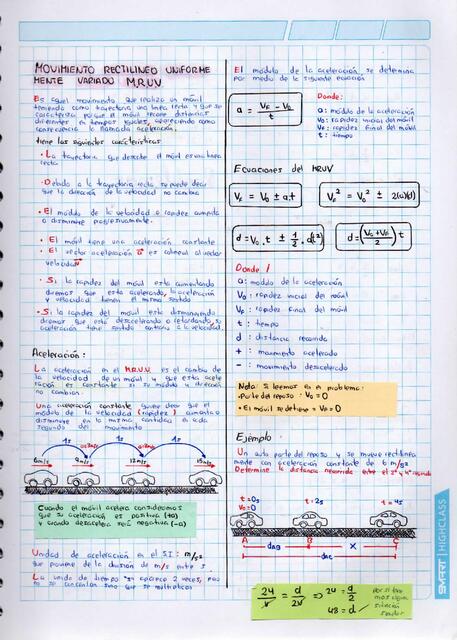 MOVIMIENTO RECTILINEO UNIFORME
MENTE VARIADO M.R.U.V.
Es aquel movimiento que realiza un móvil
teniendo como trayectoria una línea recta y que se
caracteriza porque el móvil recorre distancias
diferentes en tiempos iguales, apareciendo como
consecuencia la llamada aceleración.
tiene las siguientes características
• La trayectoria que describe el móvil es una línea
recta
• Debido a la trayectoria recta, se puede decir
que la dirección de la velocidad no cambia
• El módulo de la velocidad o rapidez aumenta
o disminuye
• El móvil tiene una aceleración constante
• El vector aceleración a es colineal al vector
velocidad
• Si la rapidez del móvil esta aumentando
diremos que esta acelerando, la aceleración
y velocidad tienen el mismo sentido
• Si la rapidez del móvil esta disminuyendo
diremos que está desacelerando o retardando, su
aceleración tiene sentido contrario a la velocidad.
Aceleración:
La aceleración en el M.R.U.V. es el cambio de
la velocidad de un móvil y que esta acele
ración es constante su módulo y dirección
no cambian.
Una aceleración constante quiere decir que el
módulo de la velocidad (rapidez) aumenta o
disminuye en la misma cantidad en cada
segundo del movimiento.
1s 1s 1s
6m/s 9m/s 12m/s 15m/s
Cuando el móvil acelera consideremos
que su aceleración es positiva (+a)
y cuando desacelera será negativa (-a)
Unidad de aceleración en el S.I: m/s²
que proviene de la división de m/s entre s
La unidad de tiempo "s" aparece 2 veces, pero
no se cancelan sino que se multiplican
El módulo de la aceleración, se determina
por medio de la siguiente ecuación
a = VF - V0 / t
Donde:
a: módulo de la aceleración
V0: rapidez inicial del móvil
VF: rapidez final del móvil
t: tiempo
Ecuaciones del MRUV
VF = V0 ± a.t
VF² = V0² ± 2(a)(d)
d = V0 . t ± 1/2 . a(t²)
d = (V0+VF / 2) t
Donde /
a: módulo de la aceleración
V0: rapidez inicial del móvil
VF: rapidez final del móvil
t : tiempo
d : distancia recorrida
+ : movimiento acelerado
- : movimiento desacelerado
Nota: Si leemos en el problema:
• Parte del reposo : V0 = 0
• El móvil se detiene → VF = 0
Ejemplo
Un auto parte del reposo y se mueve rectilínea
mente con aceleración constante de 6 m/s²
Determine la distancia recorrida entre el 2° y 4° segundo
t = 0s
V0 = 0
t = 2s
t = 4s
A B C
dAB x
dAC
24/v = d/2v ⇒ 24 = d/2
48 = d
SMART | HIGHCLASS